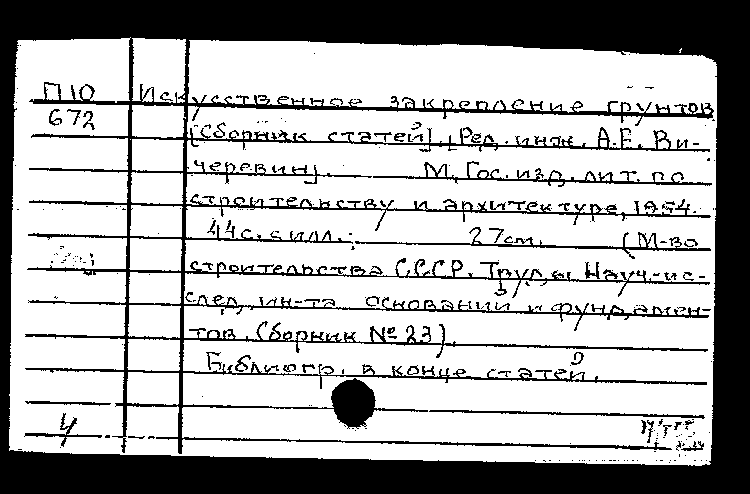 П10 Искусственное закрепление грунтов
672 [Сборник статей]. [Ред. инж. А.Е. Ви-
черевин]. М, Гос. изд. лит. по
строительству и архитектуре, 1954.
44 с. с илл.; 27 см. (М-во
строительства СССР. Труды Науч.-ис-
след. ин-та оснований и фундамен-
тов. Сборник № 23).
Библиогр. в конце статей.
4